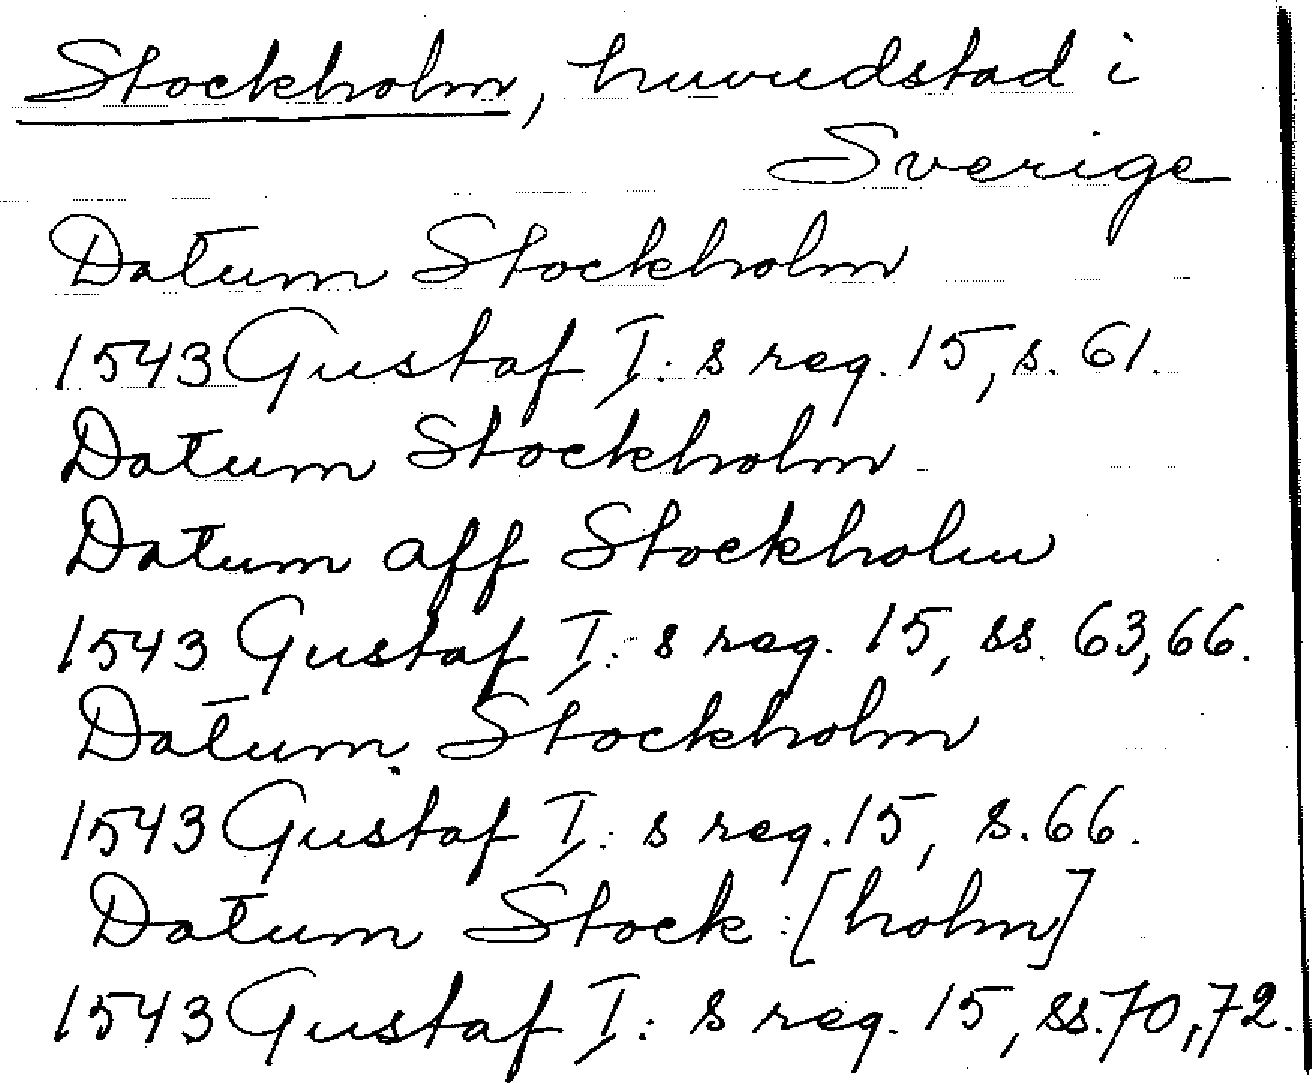 Stockholm, huvudstad i
Sverige
Datum Stockholm
1543 Gustaf I:s reg. 15, s. 61.
Datum Stockholm
Datum aff Stockholm
1543 Gustaf I:s reg. 15, ss. 63, 66.
Datum Stockholm
1543 Gustaf I:s reg. 15, s. 66.
Datum Stock:[holm]
1543 Gustaf I:s reg. 15, ss. 70, 72.